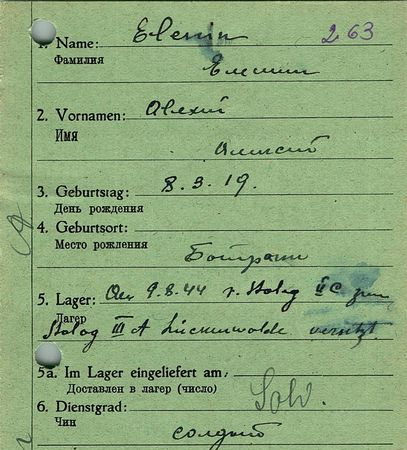 1. Name: Elenin 263
Фамилия
Еленин
2. Vornamen: Alexii
Имя
Алексей
3. Geburtstag: 8.3.19.
День рождения
4. Geburtsort:
Место рождения
5. Lager: 9.8.44 v. Stalag II C zum
Лагер
Stalag III A Luckenwalde versetzt.
5a. Im Lager eingeliefert am:
Доставлен в лагер (число)
6. Dienstgrad: Sold.
Чин
солдат